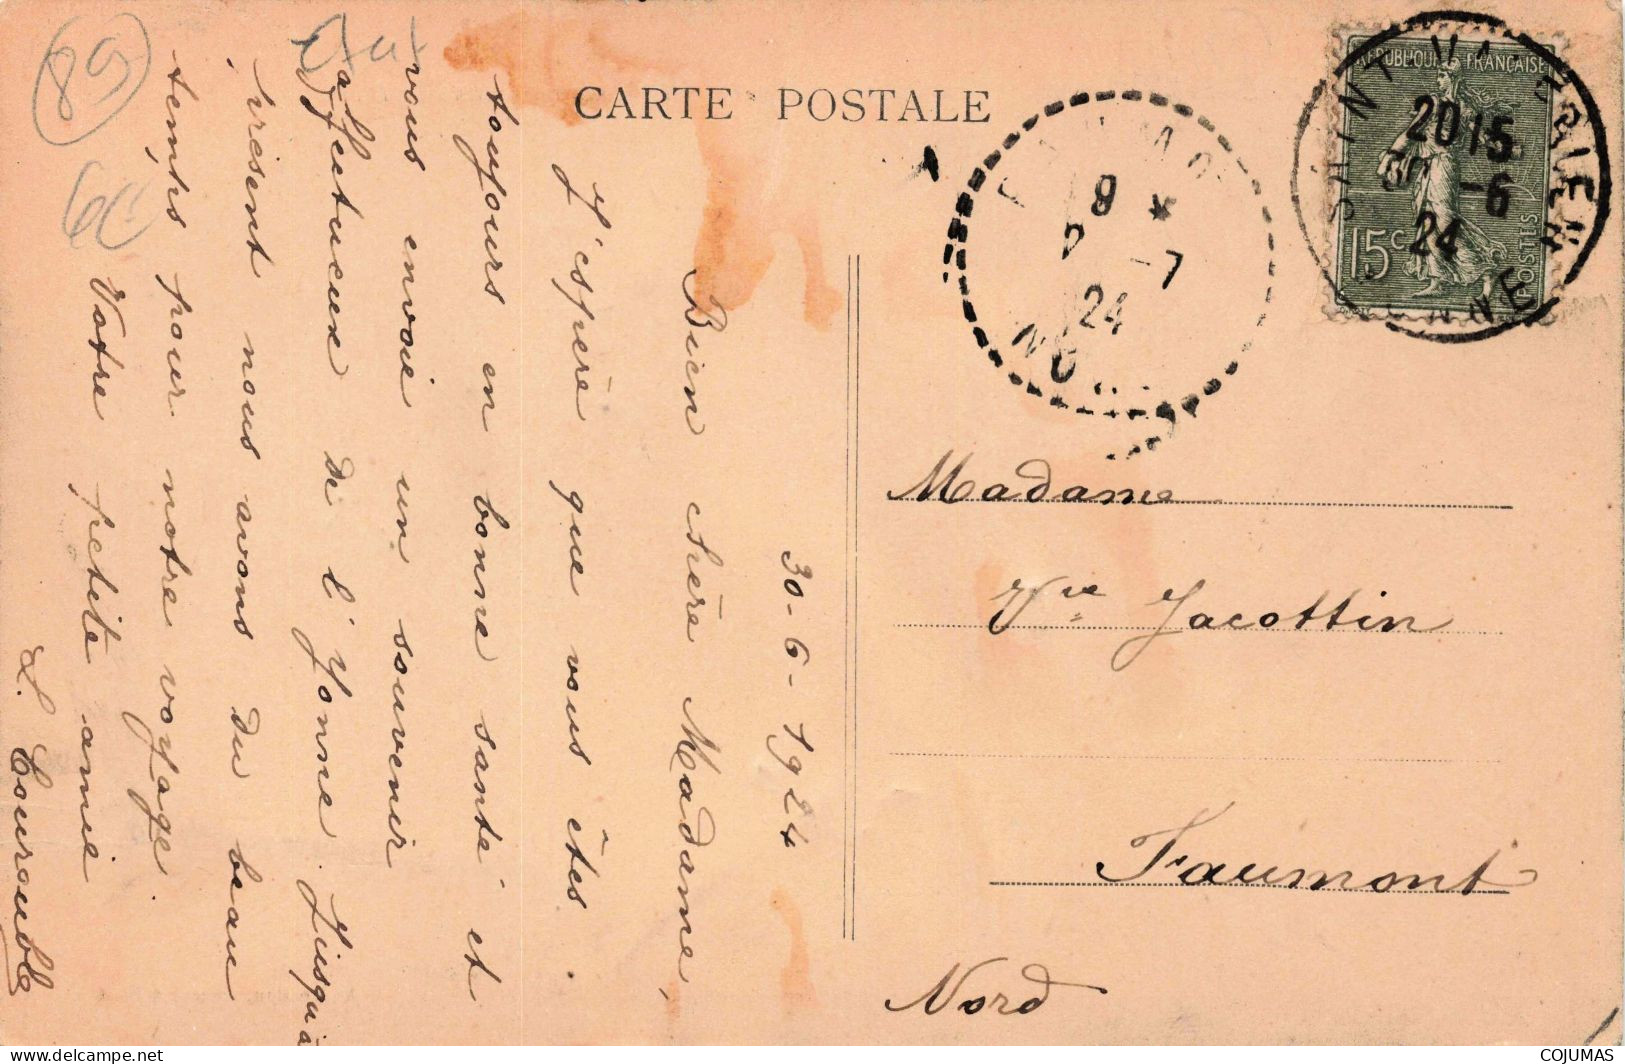 CARTE POSTALE
RÉPUBLIQUE FRANÇAISE
15c
POSTES
SAINT VALERIEN
YONNE
2015
30 -6
24
8 *
2 -7
24
NO
89
30-6-1924
Bien chère Madame,
J'espère que vous êtes
toujours en bonne santé et
vous envoie un souvenir
affectueux de l'Yonne. Jusqu'à
présent nous avons du beau
temps pour notre voyage.
Votre petite amie
Madame
Vve Jacottin
Faumont
Nord
delcampe.net
COJUMAS